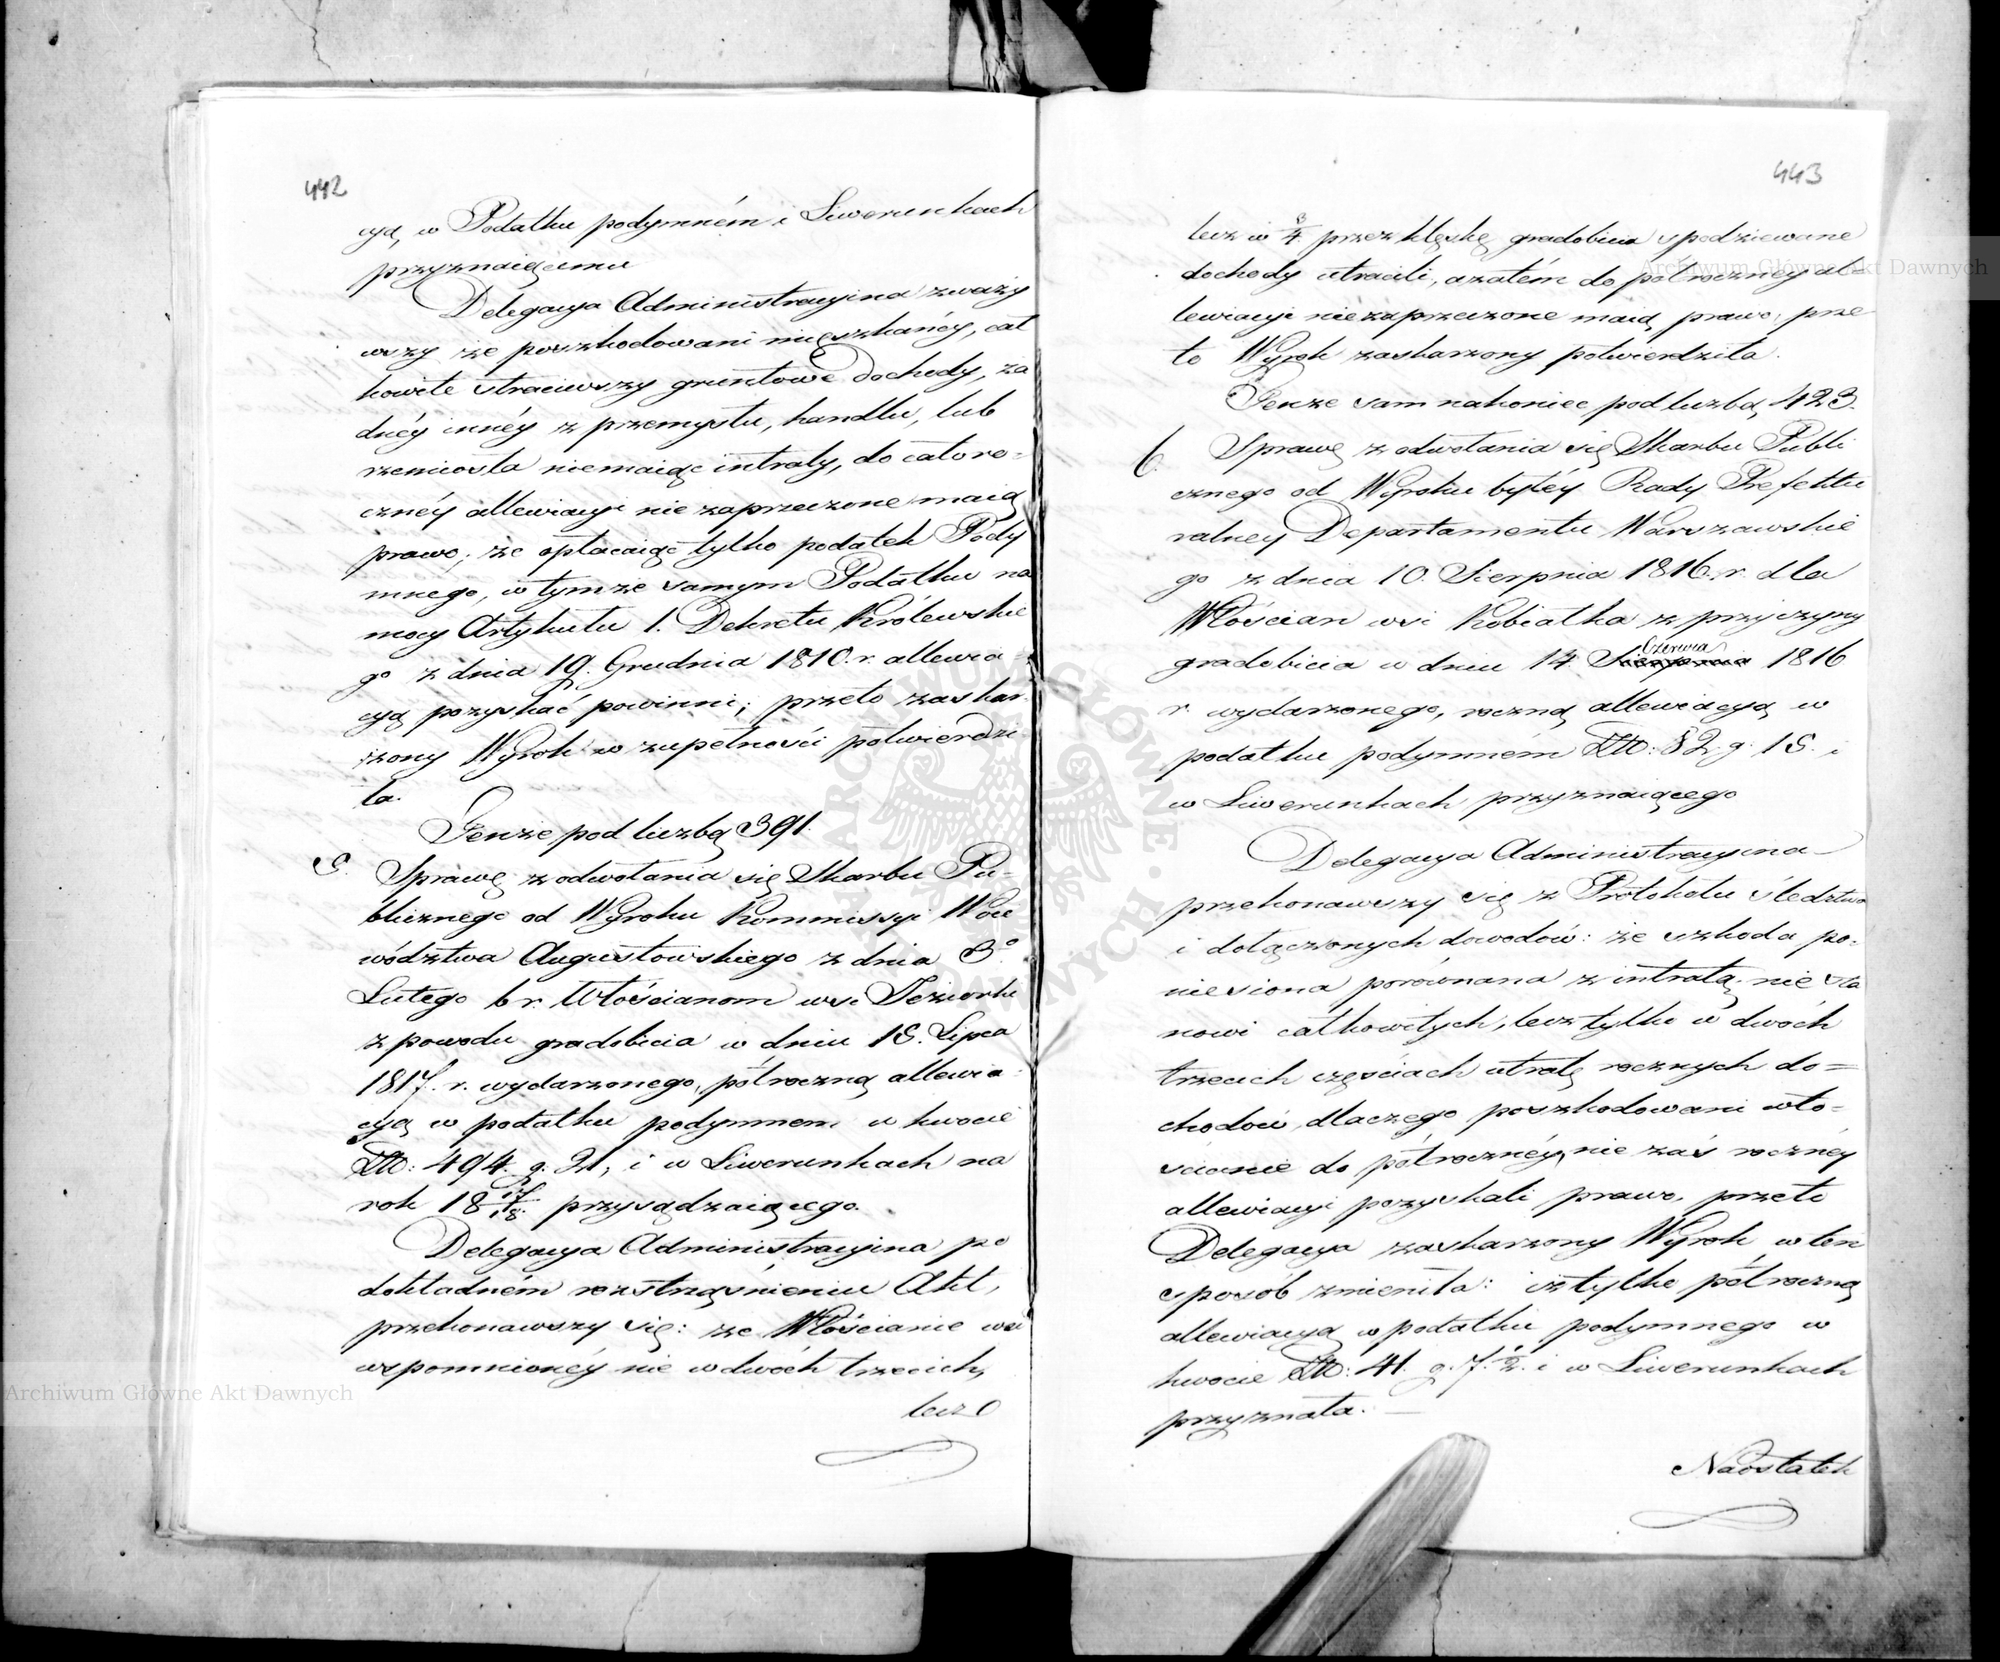 442
cyą, w Podatku podymném i Liwerunkach
przyznaiącemu
Delegacya Administracyina zważy
wszy że poszkodowani mieszkańcy, cał
kowite utraciwszy gruntowe dochody, ża
dnéy innéy z przemysłu, handlu, lub
rzemiosła niemaiąc intraty, do całoro-
cznéy allewiacyi niezaprzeczone maią
prawo; że opłacaiąc tylko podatek Pody
mnego, w tymże samym Podatku na
mocy Artykułu 1. Dekretu Królewskie
go z dnia 19. Grudnia 1810. r. allewia
cyą pozyskać powinni; przeto zaskar
żony Wyrok w zupełności potwierdzi
ła.
Tenże pod liczbą 391.
5. Sprawę z odwołania się Skarbu Pu-
blicznego od Wyroku Kommissyi Woie
wództwa Augustowskiego z dnia 3º
Lutego b r. Włościanom wsi Jeziorki
z powodu gradobicia w dniu 15. Lipca
1817. r. wydarzonego, półroczną allewia
cyą w podatku podymnem w kwocie
Złł: 494. g. 21, i w Liwerunkach na
rok 18 17/18. przysądzaiącego.
Delegacya Administracyina po
dokładném roztrząśnieniu Akt,
przekonawszy się: że Włościanie wsi
wspomnionéy nie w dwóch trzecich,
lecz
443
lecz w 3/4 przez klęskę gradobicia spodziewane
dochody utracili, a zatém do półroczney al
lewiacyi niezaprzeczone maią prawo, prze
to Wyrok zaskarzony potwierdziła.
Tenże sam nakoniec pod liczbą 423.
6. Sprawę z odwołania się Skarbu Publi
cznego od Wyroku byłéy Rady Prefektu
ralney Departamentu Warszawskie
go z dnia 10. Sierpnia 1816. r. dla
Włościan wsi Kobiałka z przyczyny
gradobicia w dniu 14. Czerwca 1816
r. wydarzonego, roczną allewiacyą w
podatku podymném Złł: 82. g. 15. i
w Liwerunkach przyznaiącego
Delegacya Administracyina
przekonawszy się z Protokołu śledztwa
i dołączonych dowodów: że szkoda po-
niesiona porównana z intratą, nie sta
nowi całkowitych, lecz tylko w dwóch
trzecich częściach utratę rocznych do-
chodów, dlaczego poszkodowani wło-
ścianie do półrocznéy, nie zaś rocznéy
allewiacyi pozyskali prawo, przeto
Delegacya zaskarzony Wyrok w ten
sposób zmieniła: iż tylko półroczną
allewiacyą w podatku podymnego w
kwocie Złł: 41. g. 7. ½. i w Liwerunkach
przyznała. —
Naostatek
Archiwum Główne Akt Dawnych
Archiwum Główne Akt Dawnych